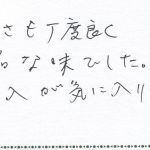 さも丁度良く
な味でした。
が気に入り